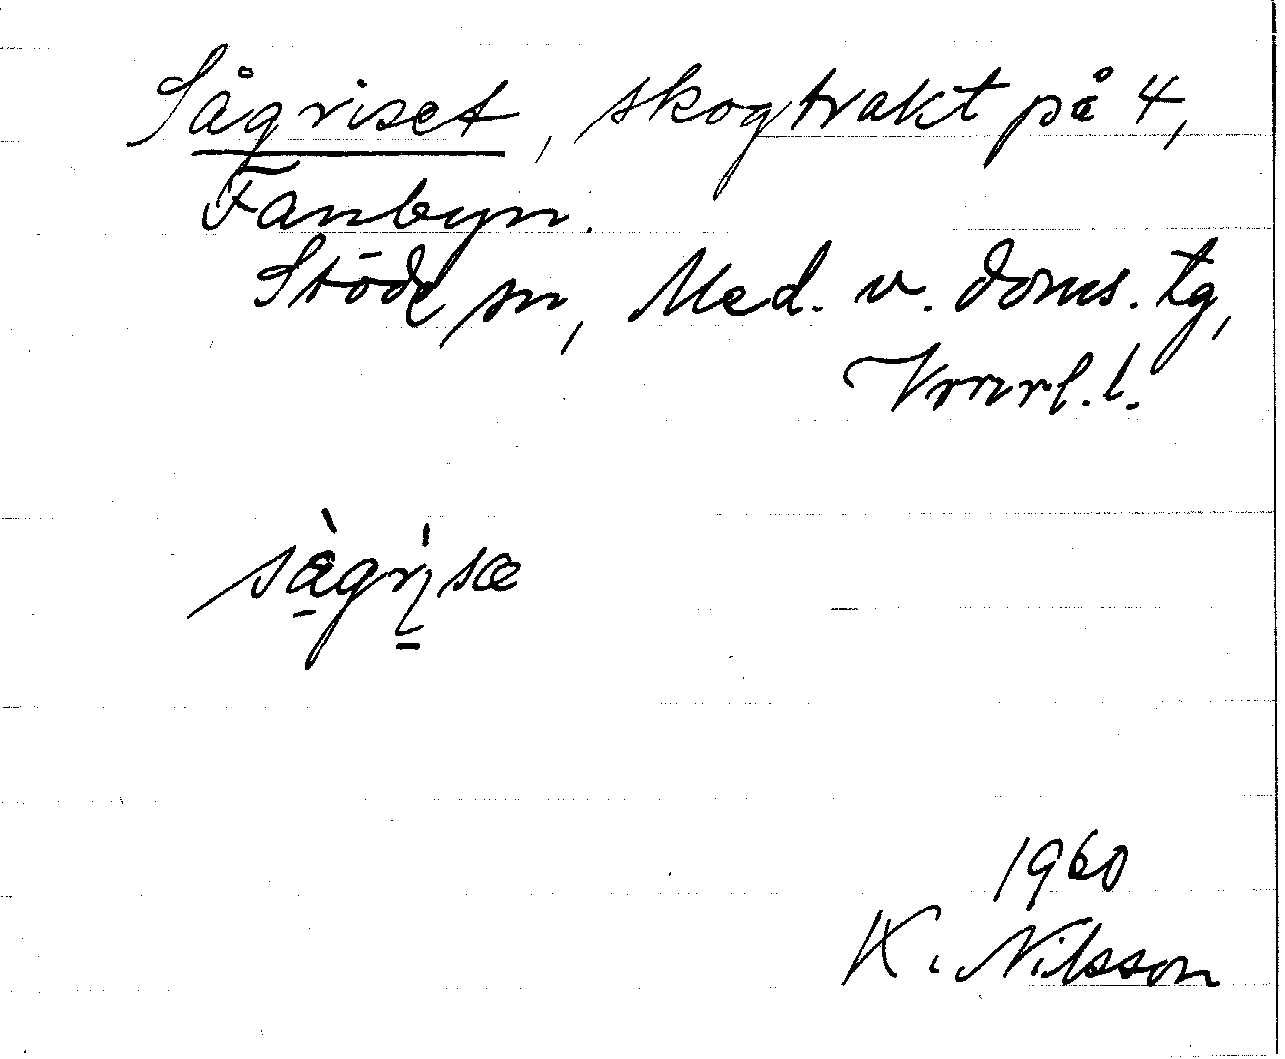 Sågriset, skogtrakt på 4,
Fanbyn.
Stöde sn, Med. v. doms. tg,
Vrnrl. l.
1960
K. Nilsson